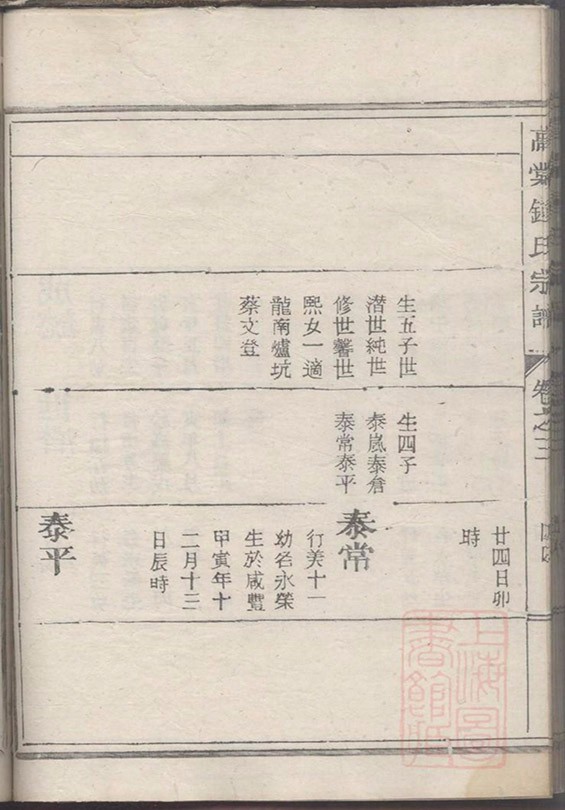 高棠鍾氏宗譜
卷之三
生五子世
潜世純世
修世馨世
熙女一適
龍南爐坑
蔡文登
生四子
泰嵐泰詹
泰常泰平
廿四日卯
時
泰常
行美十一
幼名永榮
生於咸豐
甲寅年十
二月十三
日辰時
泰平
上海圖書館藏